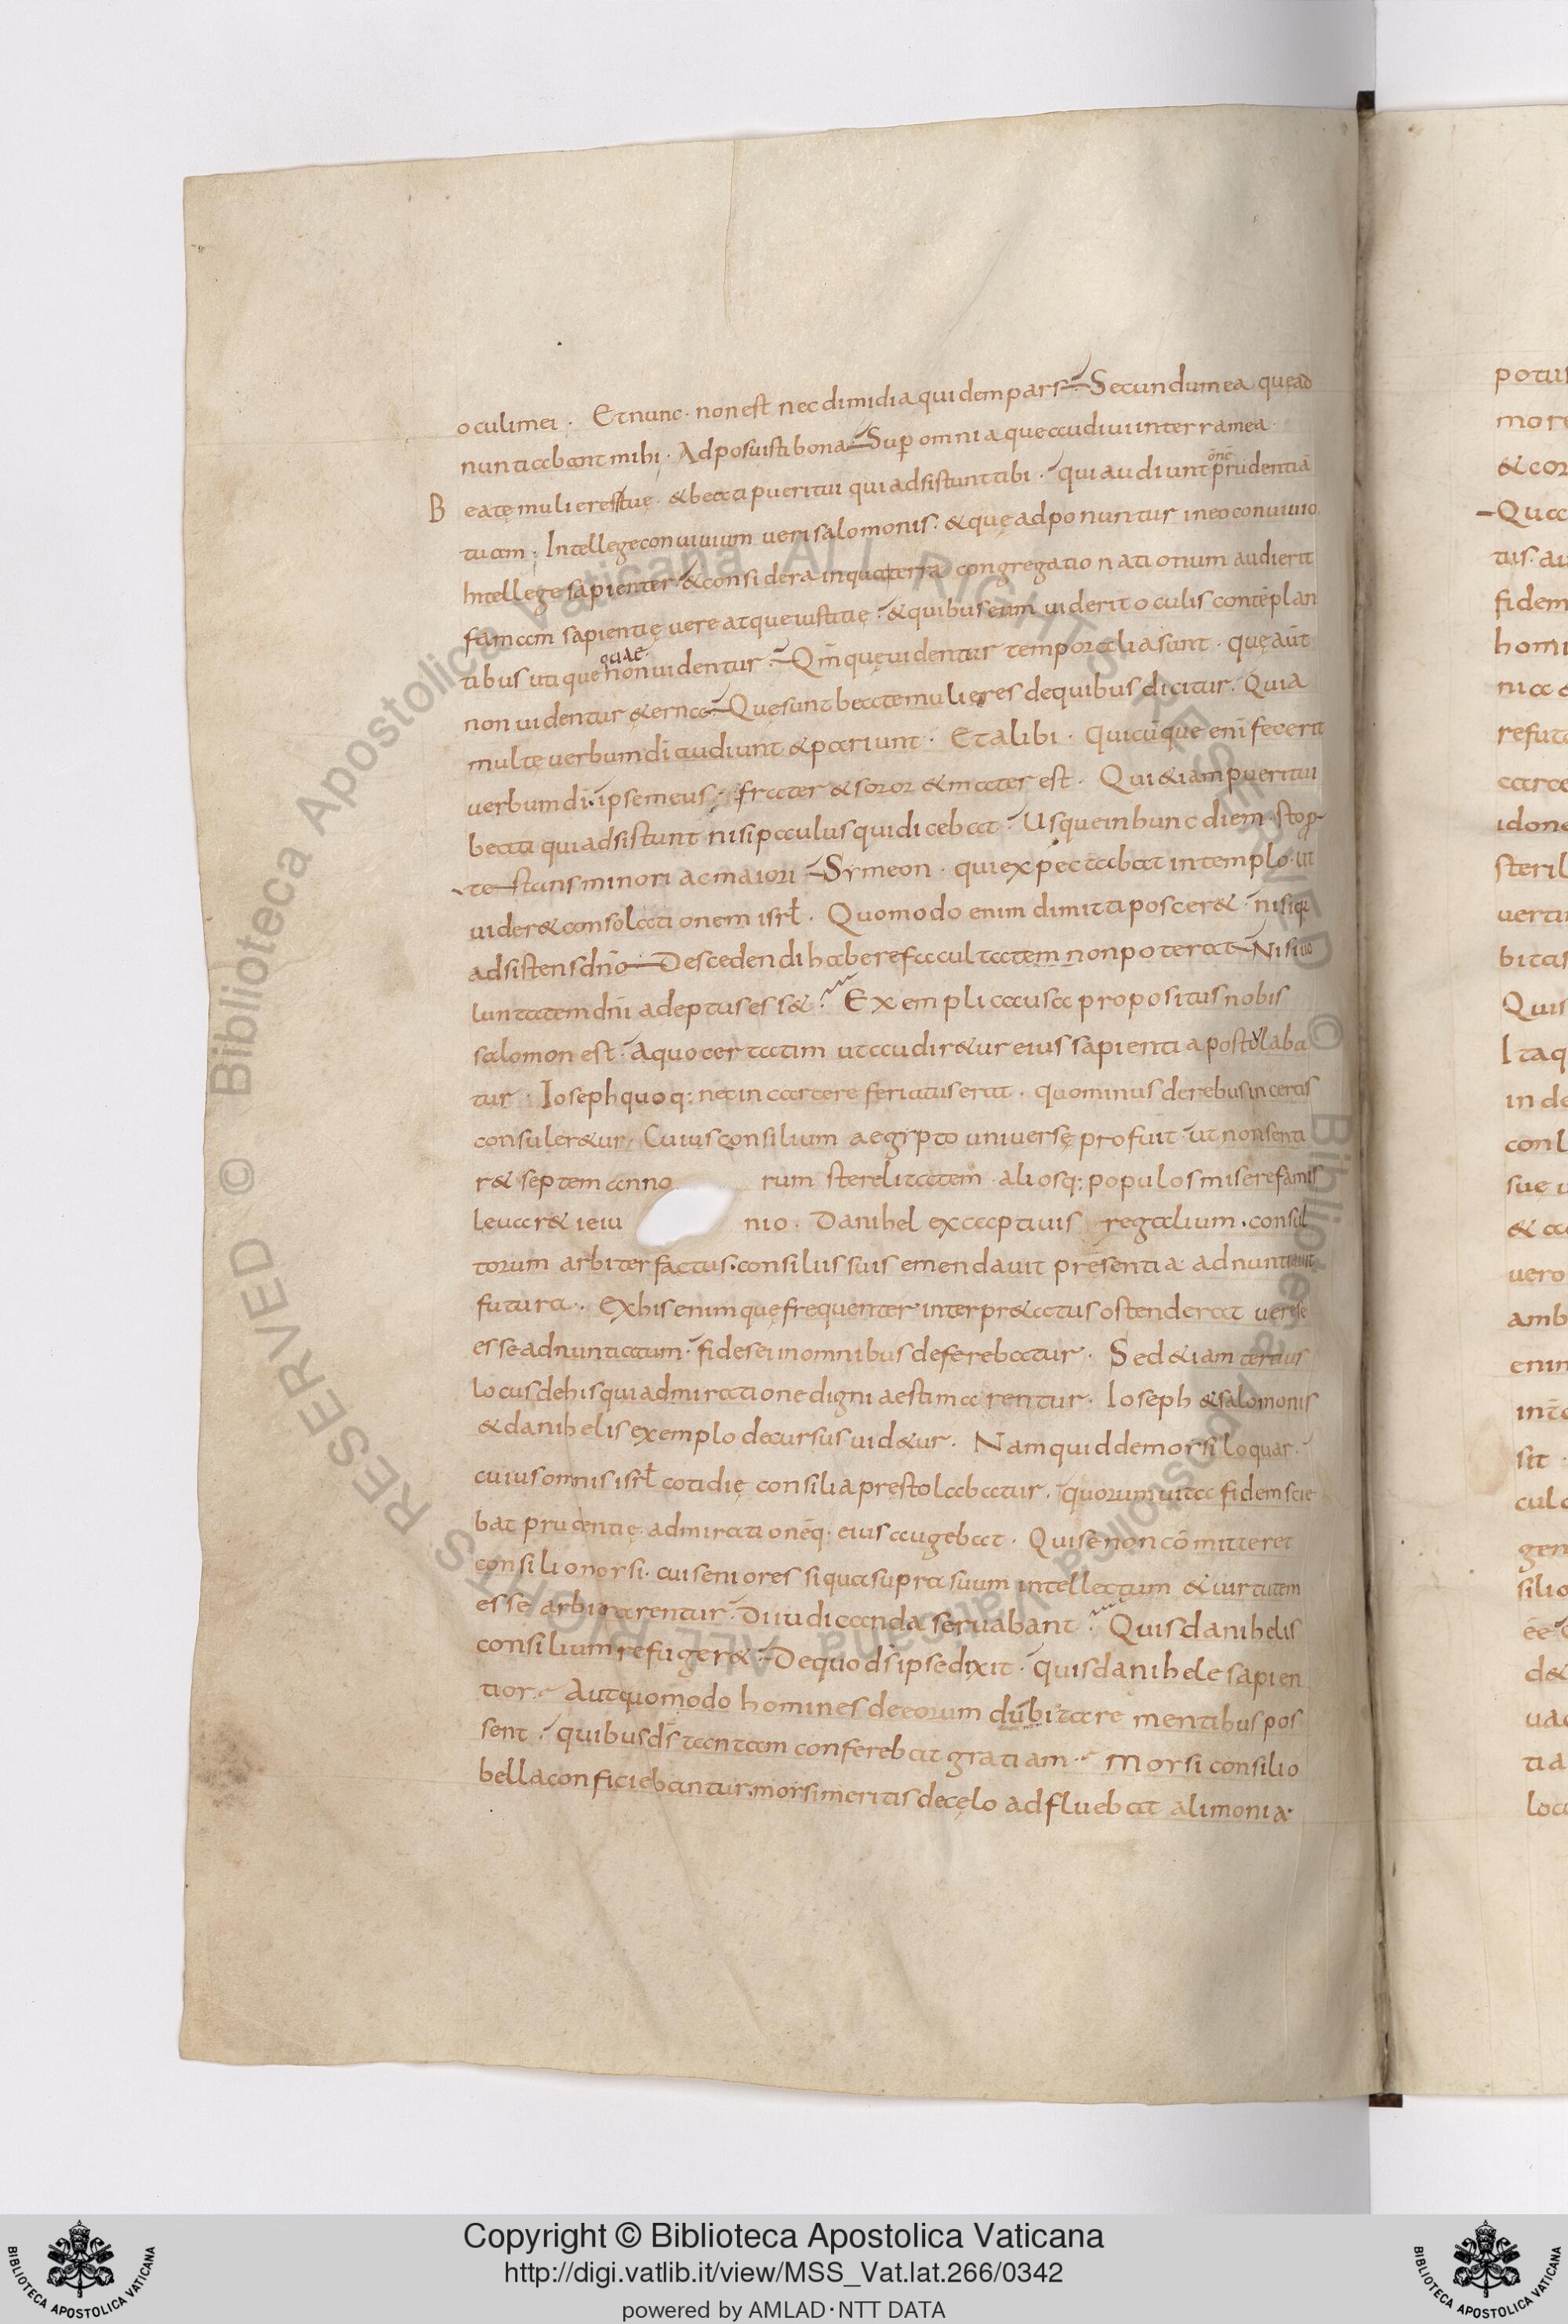 oculi mei · Et nunc · non est nec dimidia quidem pars · Secundum ea quę ad
nuntiabant mihi · Adposuisti bona · Sup̄ omnia que audiui in terra mea ·
Beatę mulieres tuę · & beati pueri tui qui adsistunt tibi · qui audiunt om̄ē prudentiā
tuam ; Intellege conuiuium ueri salomonis · & quę adponuntur in eo conuiuio ·
Intellege sapienter & considera in qua terra congregatio nationum audierit
famam sapientię uere atque iustitię · & quibus eum uiderit oculis contēplan
tibus utique quae non uidentur · Qm̄ quę uidentur temporalia sunt · quę aūt
non uidentur &erna · Quę sunt beatę mulieres de quibus dicitur · Quia
multę uerbum dī audiunt & pariunt · Et alibi · Quicūque enī fecerit
uerbum dī · ipse meus · frater & soror & mater est · Qui &iam pueri tui
beati qui adsistunt nisi paulus qui dicebat · Usque in hunc diem sto p̄
testans minori ac maiori · Symeon · qui expectabat in templo · ut
uider& consolationem isrł · Quomodo enim dimitti poscer& · nisi qui
adsistens dn̄o · Descedendi habere facultatem non poterat · Nisi uo
luntatem dn̄i adeptus ess& · Exempli causa propositus nobis
salomon est · A quo certatim ut audir&ur eius sapientia postulaba
tur · Ioseph quoq: nec in carcere feriatus erat · quominus de rebus incertis
consuler&ur · Cuius consilium aegypto uniuersę profuit · ut non senti
r& septem anno rum sterelitatem · aliosq: populos misere famis
leuar& ieiu nio · Danihel ex captiuis regalium · consul
torum arbiter factus · consiliis suis emendauit presentia adnuntiauit
futura · Ex his enim quę frequenter interpr&atus ostenderat uere se
esse adnuntiatum · fides ei in omnibus deferebatur · Sed &iam tertius
locus de his qui admiratione digni aestimarentur · Ioseph & salomonis
& danihelis exemplo decursus uid&ur · Nam quid de morsi loquar ·
cuius omnis isrł cotidię consilia prestolabatur · quorum uita fidem scie
bat prudentię admirationēq· eius augebat · Qui se non cōmitteret
consilio morsi · cui seniores si qua supra suum intellectum & uirtutem
esse arbitrarentur · Diiudicanda seruabant · Quis danihelis
consilium refuger& · De quo ds̄ ipse dixit · quis danihele sapien
tior · Aut quomodo homines de eorum dubitare mentibus pos
sent · quibus ds̄ tantam conferebat gratiam · Morsi consilio
bella conficiebantur · morsi meritis de cęlo adfluebat alimonia ·
potus
more
& cor
Qua
tus · au
fidem
homi
nia &
refuta
carce
idone
steril
uerti
bitas
Quis
Itaq
in de
conl
sue u
& a
uero
amb
enim
sit ·
culo
gen
silio
ēē
d&
ua
tia
loca
Copyright © Biblioteca Apostolica Vaticana
http://digi.vatlib.it/view/MSS_Vat.lat.266/0342
powered by AMLAD·NTT DATA
BIBLIOTECA APOSTOLICA VATICANA
BIBLIOTECA APOSTOLICA VATICANA
© Biblioteca Apostolica Vaticana ALL RIGHTS RESERVED
© Biblioteca Apostolica Vaticana ALL RIGHTS RESERVED